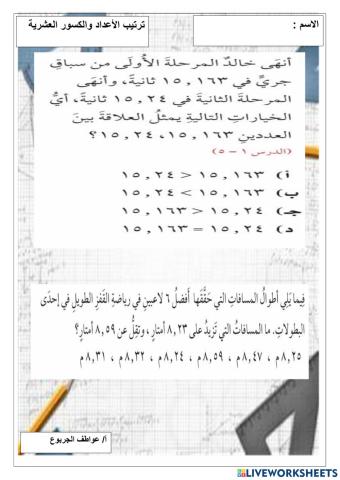 الاسم :
ترتيب الأعداد والكسور العشرية
أنهَى خالدٌ المرحلةَ الأولَى من سباقِ
جريٍ في ١٥,١٦٣ ثانيةً، وأنهَى
المرحلةَ الثانيةَ في ١٥,٢٤ ثانيةً، أيُّ
الخياراتِ التاليةِ يمثلُ العلاقةَ بينَ
العددينِ ١٥,١٦٣، ١٥,٢٤؟
(الدرس ١ - ٥)
أ) ١٥,١٦٣ > ١٥,٢٤
ب) ١٥,١٦٣ < ١٥,٢٤
جـ) ١٥,٢٤ > ١٥,١٦٣
د) ١٥,٢٤ = ١٥,١٦٣
فِيما يَلِي أطوالُ المسافاتِ التي حَقَّقَها أفضلُ ٦ لاعبينَ في رياضةِ القفزِ الطويلِ في إحدَى
البطولاتِ. ما المسافاتُ التي تَزيدُ على ٨,٢٣ أمتارٍ، وتقِلُّ عن ٨,٥٩ أمتارٍ؟
٨,٢٥م ، ٨,٤٧م ، ٨,٥٩م ، ٨,٢٤م ، ٨,٣٢م ، ٨,٣١م
أ/ عواطف الجربوع
LIVEWORKSHEETS